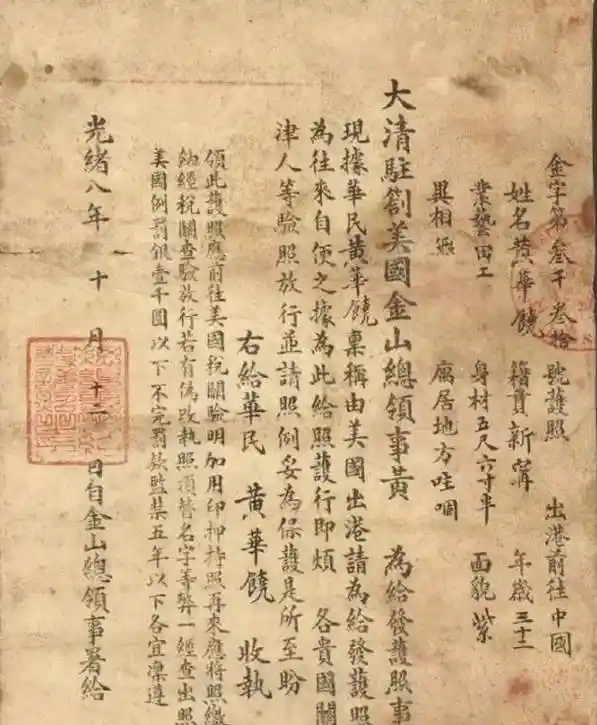 金字第叁千叁拾 號護照 出港前往中國
姓名黄華饒 籍貫新寗 年歲三十二
業藝田工 身材五尺六寸半 面貌紫
異相無 寓居地方哇咽
大清駐劄美國金山總領事黄 為給發護照事
現據華民黄華饒稟稱由美國出港請為給發護照
為往來自便之據為此給照護行即煩 各貴國關
津人等驗照放行並請照例妥為保護是所至盼
右給華民 黄華饒 收執
領此護照應前往美國稅關驗明加用印押持照再來應將照繳
納經稅關查驗放行若有偽改執照頂替名字等弊一經查出照
美國例罰銀壹千圓以下不完罰款監禁五年以下各宜凜遵
光緒八年 十 月 十二 日自金山總領事署給